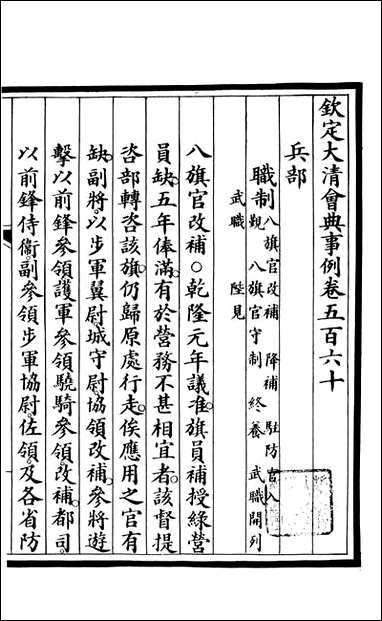 欽定大清會典事例卷五百六十
兵部
職制八旗官改補 降補 駐防官入
覲 八旗官守制終養 武職開列
武職 陛見
八旗官改補○乾隆元年議准旗員補授綠營
員缺五年俸滿有於營務不甚相宜者該督提
咨部轉咨該旗仍歸原處行走俟應用之官有
缺副將以步軍翼尉城守尉協領改補參將遊
擊以前鋒參領護軍參領驍騎參領改補都司
以前鋒侍衞副參領步軍協尉佐領及各省防